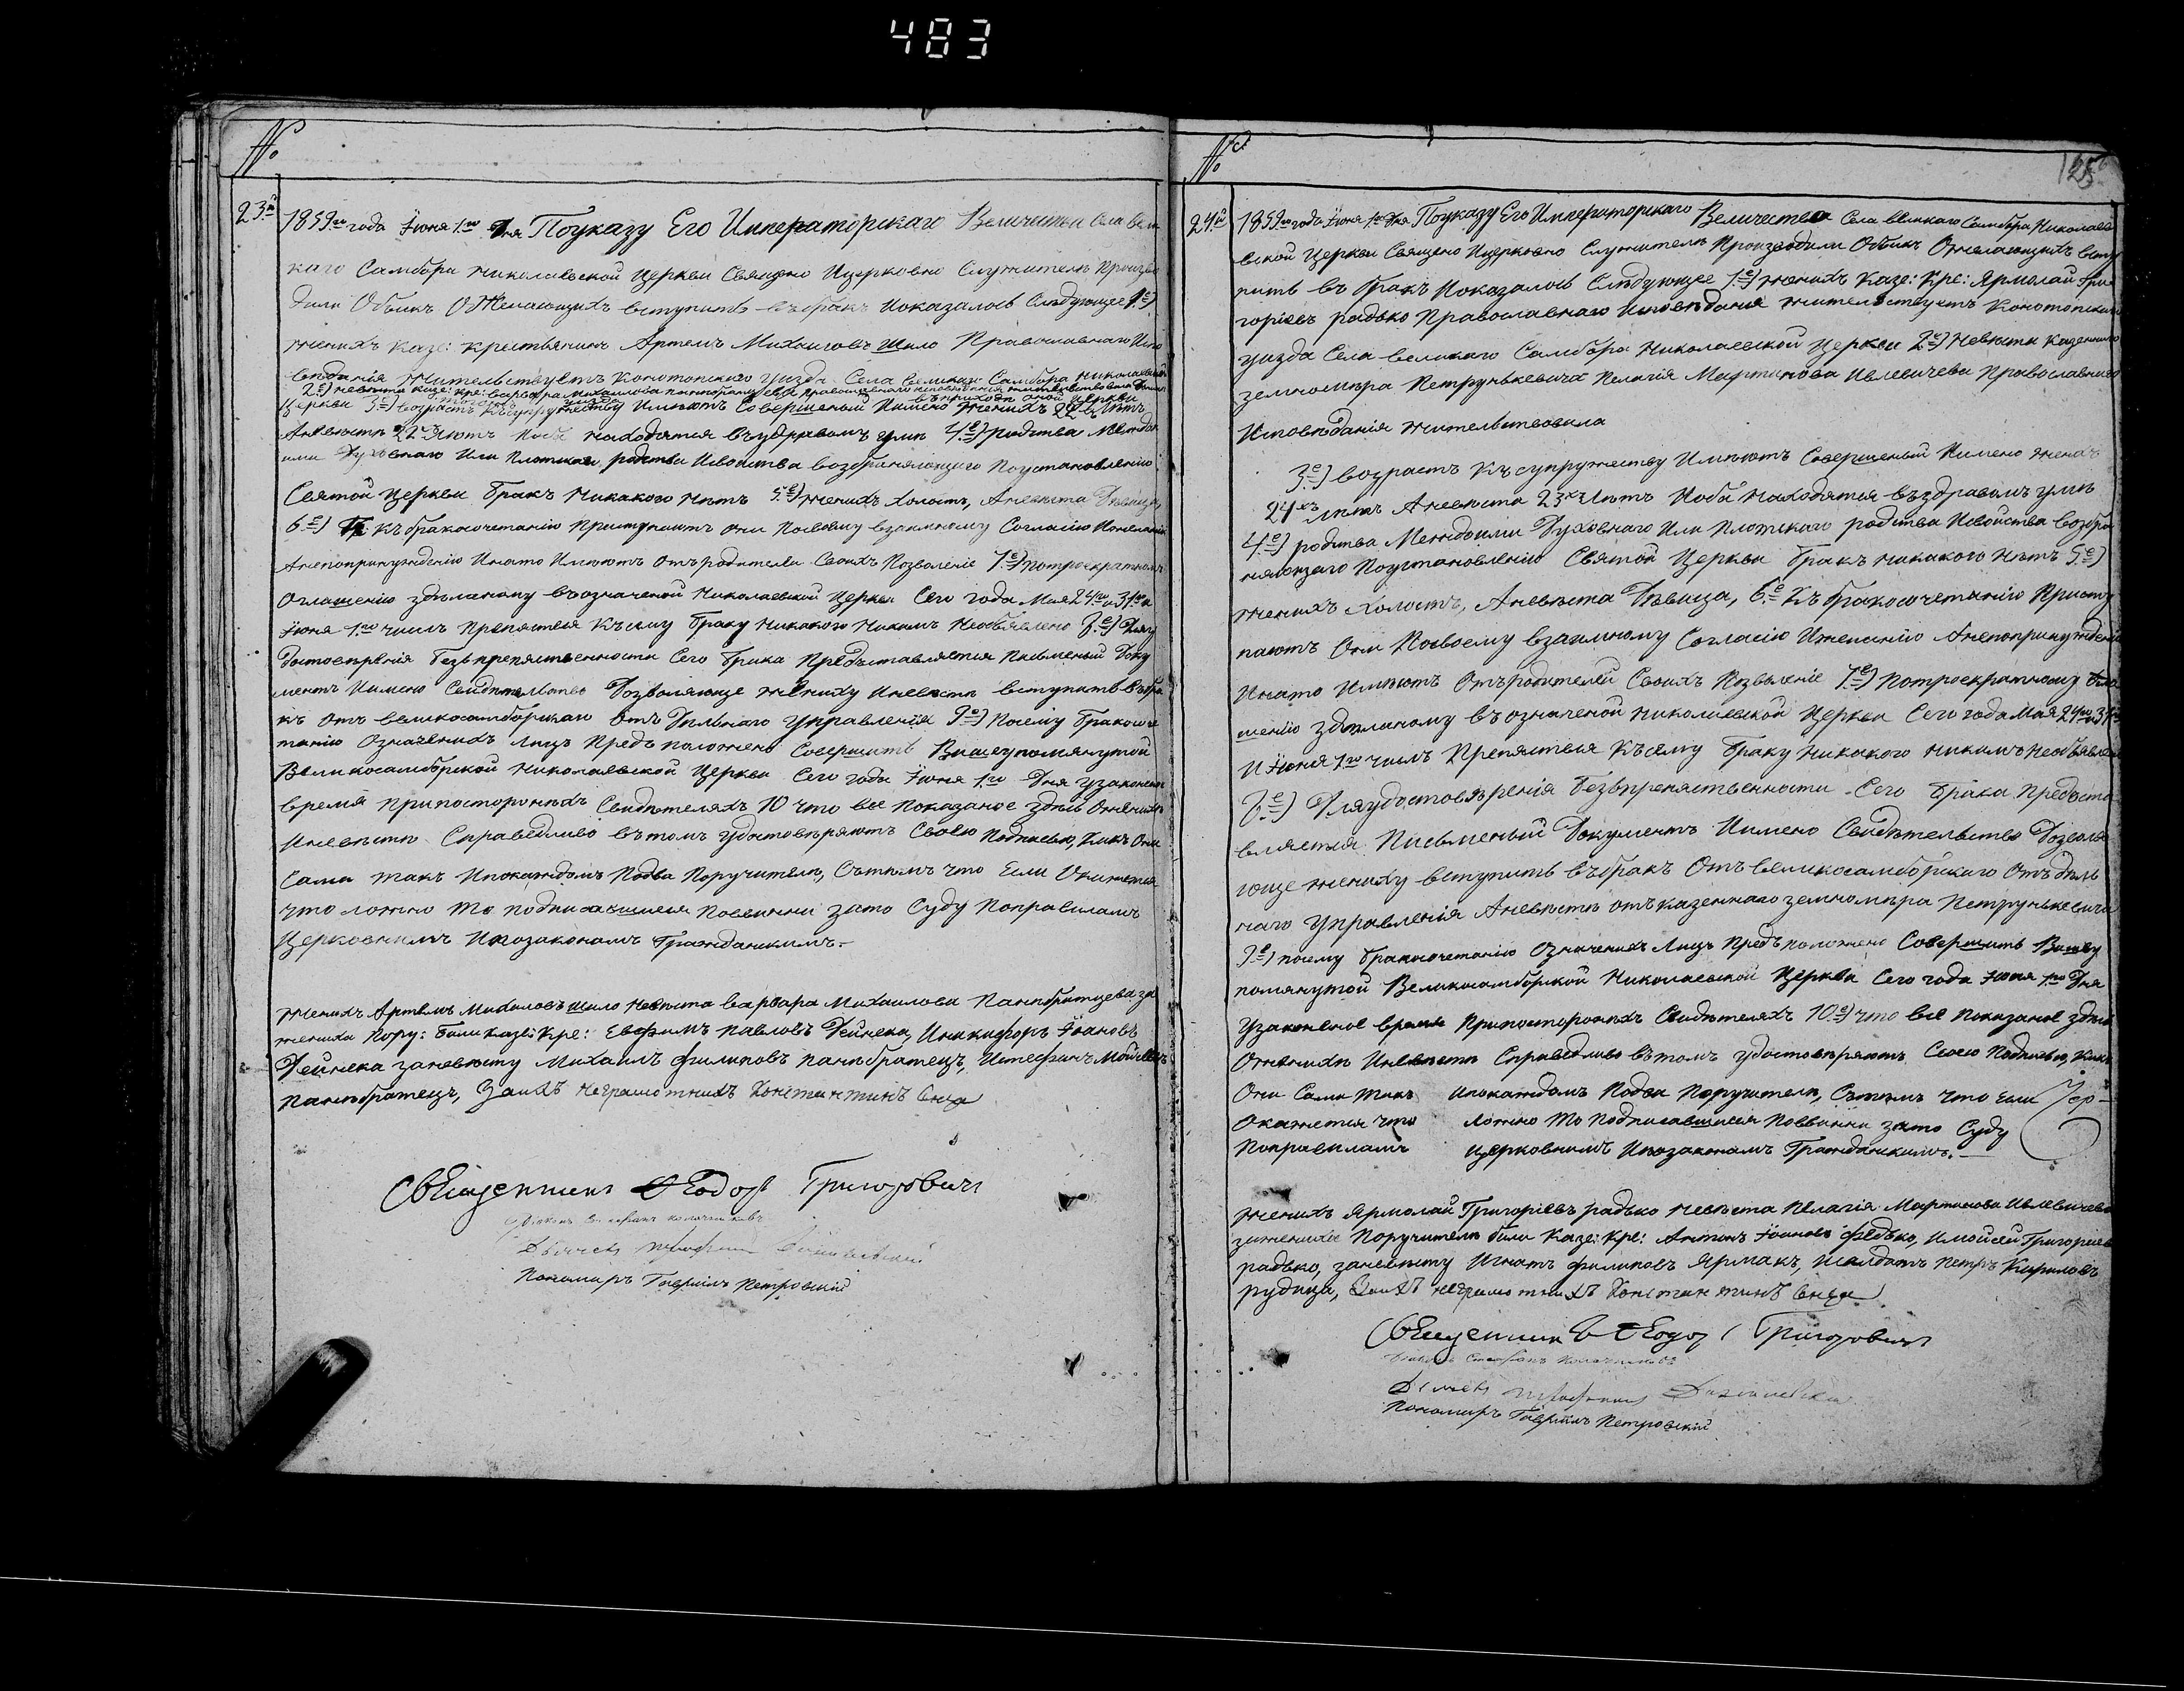 483
№
23й
1859го года Іюня 1го Дня Поуказу Его Императорскаго Величества Села Вели
каго Самбора Николаевской Церкви Священо Ицерковно Служители Произво
дили Обыскъ Ожелающихъ вступить въбракъ Иоказалось Слѣдующее 1е)
женихъ казе: крестьянинъ Артемъ Михаиловъ Шило Православнаго Испо
вѣданія жительствуетъ Конотопскаго уѣзда Села Великаго Самбора Николаевской
2е) невѣста казе: кре: варвара Михаилова панибратцева православнаго исповѣданія жительствовала
въприходѣ оной церкви
Церкви 3е) возрастъ Къ супружеству Имѣютъ Совершеный Имено женихъ 22 Лѣтъ
Аневѣста 22 Лѣтъ Иоба находятся въздравомъ умѣ 4е) родства Между
ими Духовнаго Или Плотскаго родства Исвойства возбраняющаго Поустановлению
Святой Церкви бракъ Никакого Нѣтъ 5е) женихъ холостъ, Аневѣста Дѣвица,
6е) Къ бракосочетанію Приступаютъ они Посвоему взаимному Согласію Ижеланію
Анепопринужденію Инато Имѣютъ отъродителей Своихъ Позволеніе 7е) Потроекратному
Оглашенію здѣланому въозначеной Николаевской Церкви Сего года Мая 24го и 31го и
Іюня 1го числъ Препятствія Къ сему браку Никакого Никимъ Необъявлено 8е) Дляу
достовѣренія безъпрепятственности Сего брака Предъставляется Письменый Доку
ментъ Имено Свидѣтельство Дозволяюще жениху Иневѣсти вступить въбра
къ отъ великосамборскаго отъ Дѣльнаго Управленія 9е) Посему бракосоче
танію Означеныхъ Лицъ Предъположено Совершить Вишеупомянутой
Великосамборской Николаевской Церкви Сего года Іюня 1го Дня Узаконеное
время припосторонихъ Свидѣтеляхъ 10 что все показаное здѣсь Оженихѣ
Иневѣстѣ Справедливо вътомъ Удостовѣряютъ Своею Подписью, Какъ Они
Сами такъ Ипокаждомъ Подва Поручителя, Сътимъ что Если Окажется
что ложно То подписавшиеся повинни зато Суду Поправиламъ
Церковнимъ Ипозаконамъ Гражданскимъ.-
женихъ Артемъ Михаиловъ шило Невѣста варвара Михаилова Панибратцева за
жениха Пору: били казе: Кре: Евфимъ павловъ Дейнека, Иникифоръ Іоановъ
Дейнека заневѣсту Михаилъ филиповъ панибратецъ, Истефанъ Мойсеевъ
панибратецъ, Заихъ неграмотнихъ Константинъ Енда
Священникъ Феодоръ Григоровичъ
Діаконъ Стефанъ
Дячокъ
Пономарь Гавріилъ Петровскій
№
125
24й
1859го года Іюня 1го Дня Поуказу Его Императорскаго Величества Села Великаго Самбора Николае
вской Церкви Священо Ицерковно Служители Производили Обыскъ Ожелающихъ всту
пить въ бракъ Иоказалось Слѣдующее 1е) женихъ Казе: Кре: Ярмолай Гри
горіевъ радько Православнаго Исповѣданія жительствуетъ Конотопскаго
уѣзда Села великаго Самбора Николаевской Церкви 2е) Невѣста Казеннаго
землемѣра Петрунькевича Пелагія Мартинова Ивлевичева Православнаго
Исповѣданія жительствовала
3е) возрастъ Къ супружеству Имѣютъ Совершеный Имено женихъ
24хъ Лѣтъ Аневѣста 23хъ Лѣтъ Иоба Находятся въздравомъ умѣ
4е) родства Междоими Духовнаго Или Плотскаго родства Исвойства возбра
няющаго Поустановлению Святой Церкви бракъ Никакого Нѣтъ 5е)
женихъ холостъ, Аневѣста Дѣвица, 6е Къ бракосочетанію Присту
паютъ Они Посвоему взаимному Согласію Ижеланію Анепопринужденію
Инато Имѣютъ Отъродителей Своихъ Позволеніе 7е) Потроекратному Огла
шенію здѣланому въозначеной Николаевской Церкви Сего года Мая 24го и 31го
И Іюня 1го числъ Препятствія Къ сему браку Никакого Никимъ Необъявлено
8е) Дляудостовѣренія безъпрепятственности Сего брака Предъста
вляется Письменый Документъ Имено Свидѣтельство Дозволя
юще жениху вступить въбракъ Отъвеликосамборскаго Отъдѣль
наго Управленія Аневѣстѣ отъказеннаго землемѣра Петрунькевича
9е) посему бракосочетанію Означеныхъ Лицъ Предъположено Совершить Вишеу
помянутой Великосамборской Николаевской Церкви Сего года Іюня 1го Дня
Узаконеное время Припосторонихъ Свидѣтеляхъ 10е) что все показаное здѣсь
Оженихѣ Иневѣстѣ Справедливо вътомъ удостовѣряютъ Своею Подписью, Какъ
Они Сами такъ Ипокаждомъ Подва Поручителя, Сътимъ что Если
Окажется что ложно То Подписавшиеся Повинни зато Суду
Поправиламъ Церковнимъ Ипозаконамъ Гражданскимъ.-
женихъ Ярмолай Григоріевъ радько Невѣста Пелагія Мартинова Ивлевичева
зажениха Поручители били Казе: Кре: Антонъ Іоановъ Федько, Имойсей Григориевъ
радько, заневѣсту Игнатъ филиповъ Ярмакъ, Исалдатъ Петръ Кириловъ
рудица, Заихъ неграмотнихъ Константинъ Енда
Священникъ Феодоръ Григоровичъ
Стефанъ
Пономарь Гавріилъ Петровскій